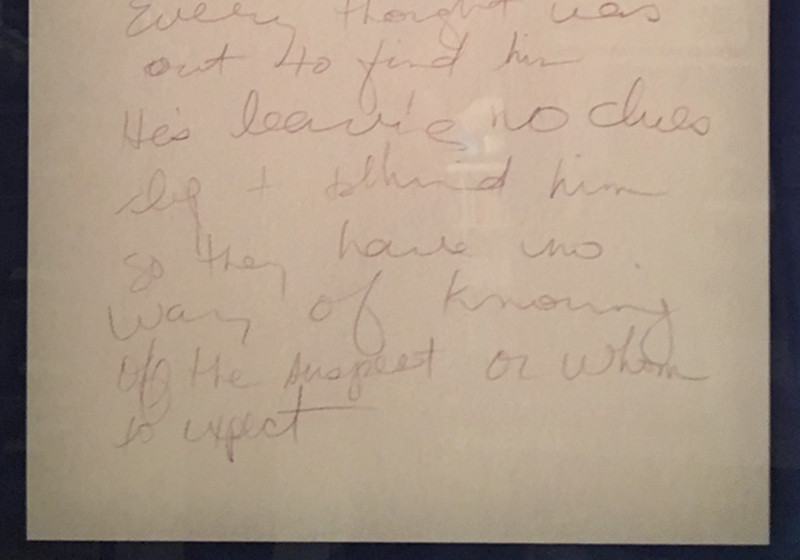 Every thought was
out to find him
He's leaving no clues
behind him
so they have no
way of knowing
of the suspect or whom
to expect